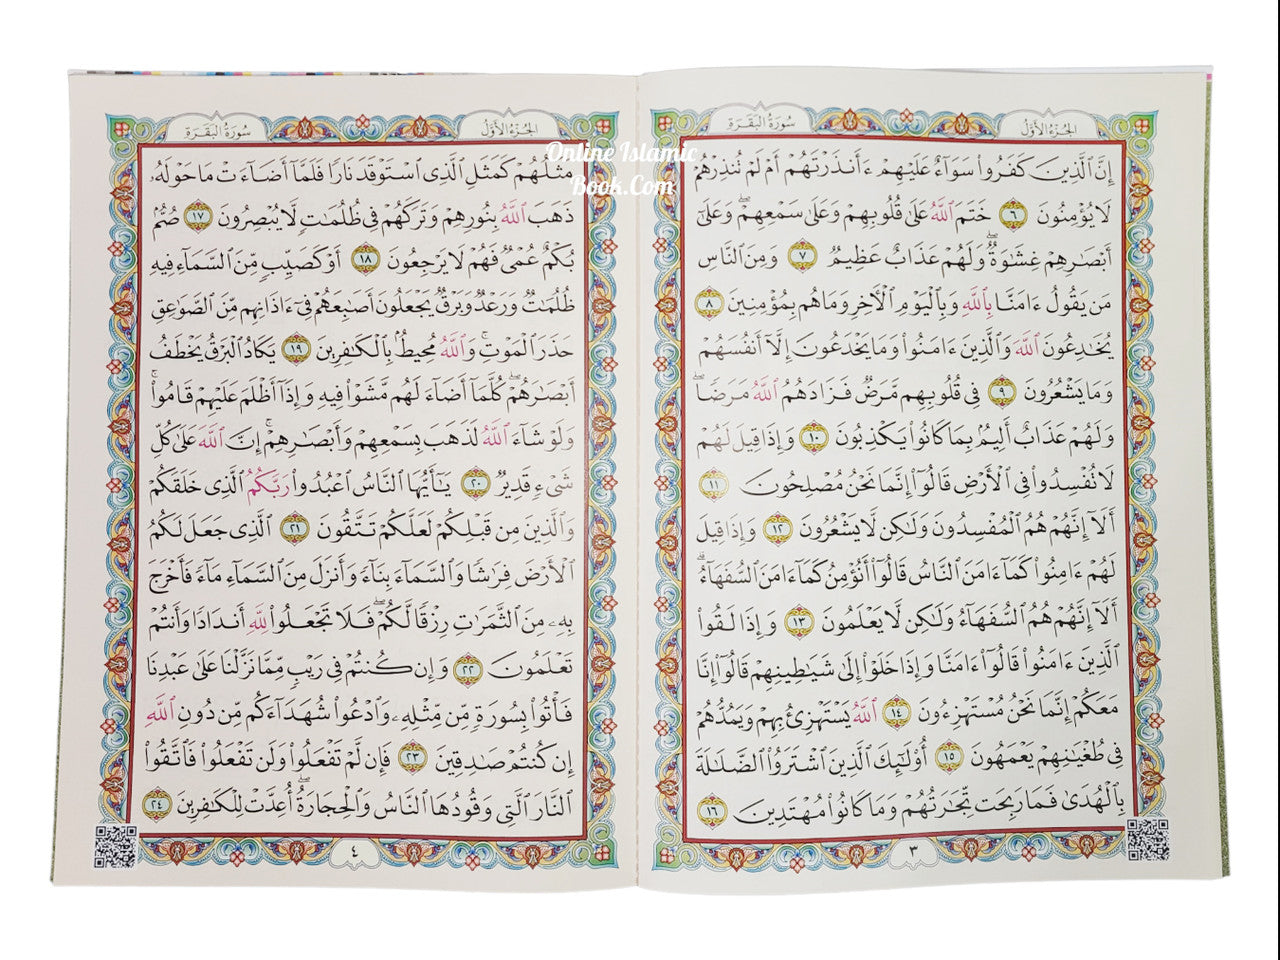 سُورَةُ البَقَرَةِ
الجُزْءُ الأَوَّلُ
إِنَّ ٱلَّذِينَ كَفَرُوا۟ سَوَآءٌ عَلَيْهِمْ ءَأَنذَرْتَهُمْ أَمْ لَمْ تُنذِرْهُمْ
لَا يُؤْمِنُونَ ٦ خَتَمَ ٱللَّهُ عَلَىٰ قُلُوبِهِمْ وَعَلَىٰ سَمْعِهِمْ ۖ وَعَلَىٰٓ
أَبْصَـٰرِهِمْ غِشَـٰوَةٌ ۖ وَلَهُمْ عَذَابٌ عَظِيمٌ ٧ وَمِنَ ٱلنَّاسِ
مَن يَقُولُ ءَامَنَّا بِٱللَّهِ وَبِٱلْيَوْمِ ٱلْـَٔاخِرِ وَمَا هُم بِمُؤْمِنِينَ ٨
يُخَـٰدِعُونَ ٱللَّهَ وَٱلَّذِينَ ءَامَنُوا۟ وَمَا يَخْدَعُونَ إِلَّآ أَنفُسَهُمْ
وَمَا يَشْعُرُونَ ٩ فِى قُلُوبِهِم مَّرَضٌ فَزَادَهُمُ ٱللَّهُ مَرَضًا ۖ
وَلَهُمْ عَذَابٌ أَلِيمٌۢ بِمَا كَانُوا۟ يَكْذِبُونَ ١٠ وَإِذَا قِيلَ لَهُمْ
لَا تُفْسِدُوا۟ فِى ٱلْأَرْضِ قَالُوٓا۟ إِنَّمَا نَحْنُ مُصْلِحُونَ ١١
أَلَآ إِنَّهُمْ هُمُ ٱلْمُفْسِدُونَ وَلَـٰكِن لَّا يَشْعُرُونَ ١٢ وَإِذَا قِيلَ
لَهُمْ ءَامِنُوا۟ كَمَآ ءَامَنَ ٱلنَّاسُ قَالُوٓا۟ أَنُؤْمِنُ كَمَآ ءَامَنَ ٱلسُّفَهَآءُ ۗ
أَلَآ إِنَّهُمْ هُمُ ٱلسُّفَهَآءُ وَلَـٰكِن لَّا يَعْلَمُونَ ١٣ وَإِذَا لَقُوا۟
ٱلَّذِينَ ءَامَنُوا۟ قَالُوٓا۟ ءَامَنَّا وَإِذَا خَلَوْا۟ إِلَىٰ شَيَـٰطِينِهِمْ قَالُوٓا۟ إِنَّا
مَعَكُمْ إِنَّمَا نَحْنُ مُسْتَهْزِءُونَ ١٤ ٱللَّهُ يَسْتَهْزِئُ بِهِمْ وَيَمُدُّهُمْ
فِى طُغْيَـٰنِهِمْ يَعْمَهُونَ ١٥ أُو۟لَـٰٓئِكَ ٱلَّذِينَ ٱشْتَرَوُا۟ ٱلضَّلَـٰلَةَ
بِٱلْهُدَىٰ فَمَا رَبِحَت تِّجَـٰرَتُهُمْ وَمَا كَانُوا۟ مُهْتَدِينَ ١٦
٣
سُورَةُ البَقَرَةِ
الجُزْءُ الأَوَّلُ
مَثَلُهُمْ كَمَثَلِ ٱلَّذِى ٱسْتَوْقَدَ نَارًا فَلَمَّآ أَضَآءَتْ مَا حَوْلَهُۥ
ذَهَبَ ٱللَّهُ بِنُورِهِمْ وَتَرَكَهُمْ فِى ظُلُمَـٰتٍ لَّا يُبْصِرُونَ ١٧ صُمٌّۢ
بُكْمٌ عُمْىٌ فَهُمْ لَا يَرْجِعُونَ ١٨ أَوْ كَصَيِّبٍ مِّنَ ٱلسَّمَآءِ فِيهِ
ظُلُمَـٰتٌ وَرَعْدٌ وَبَرْقٌ يَجْعَلُونَ أَصَـٰبِعَهُمْ فِىٓ ءَاذَانِهِم مِّنَ ٱلصَّوَٰعِقِ
حَذَرَ ٱلْمَوْتِ ۚ وَٱللَّهُ مُحِيطٌۢ بِٱلْكَـٰفِرِينَ ١٩ يَكَادُ ٱلْبَرْقُ يَخْطَفُ
أَبْصَـٰرَهُمْ ۖ كُلَّمَآ أَضَآءَ لَهُم مَّشَوْا۟ فِيهِ وَإِذَآ أَظْلَمَ عَلَيْهِمْ قَامُوا۟ ۚ
وَلَوْ شَآءَ ٱللَّهُ لَذَهَبَ بِسَمْعِهِمْ وَأَبْصَـٰرِهِمْ ۚ إِنَّ ٱللَّهَ عَلَىٰ كُلِّ
شَىْءٍ قَدِيرٌ ٢٠ يَـٰٓأَيُّهَا ٱلنَّاسُ ٱعْبُدُوا۟ رَبَّكُمُ ٱلَّذِى خَلَقَكُمْ
وَٱلَّذِينَ مِن قَبْلِكُمْ لَعَلَّكُمْ تَتَّقُونَ ٢١ ٱلَّذِى جَعَلَ لَكُمُ
ٱلْأَرْضَ فِرَٰشًا وَٱلسَّمَآءَ بِنَآءً وَأَنزَلَ مِنَ ٱلسَّمَآءِ مَآءً فَأَخْرَجَ
بِهِۦ مِنَ ٱلثَّمَرَٰتِ رِزْقًا لَّكُمْ ۖ فَلَا تَجْعَلُوا۟ لِلَّهِ أَندَادًا وَأَنتُمْ
تَعْلَمُونَ ٢٢ وَإِن كُنتُمْ فِى رَيْبٍ مِّمَّا نَزَّلْنَا عَلَىٰ عَبْدِنَا
فَأْتُوا۟ بِسُورَةٍ مِّن مِّثْلِهِۦ وَٱدْعُوا۟ شُهَدَآءَكُم مِّن دُونِ ٱللَّهِ
إِن كُنتُمْ صَـٰدِقِينَ ٢٣ فَإِن لَّمْ تَفْعَلُوا۟ وَلَن تَفْعَلُوا۟ فَٱتَّقُوا۟
ٱلنَّارَ ٱلَّتِى وَقُودُهَا ٱلنَّاسُ وَٱلْحِجَارَةُ ۖ أُعِدَّتْ لِلْكَـٰفِرِينَ ٢٤
٤
Online Islamic
Book.Com